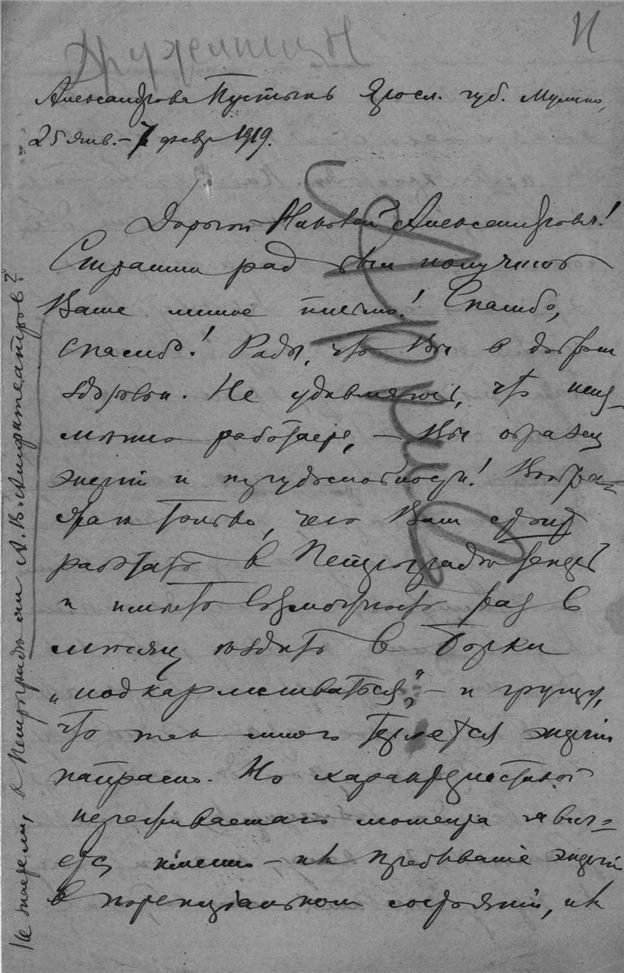 Дружинин
11
Александрова Пустынь Яросл. губ.
25 янв. – 7 февр 1919.
Дорогой Николай Александрович!
Страшно рад был получить
Ваше милое письмо! Спасибо,
спасибо! Рад, что Вы в добром
здоровьи. Не удивляюсь, что
работаете, – Вы образец
энергии и трудоспособности!
только, чего Вам стоит
работать в Петрограде
и иметь возможность раз в
месяц ездить в Борки
„подкармливаться", – и грущу,
что так много теряется энергии
напрасно. Но характеристикой
переживаемаго момента является
именно – пребывание энергии
в потенциальном состоянии,
Не знаете ли, в Петрограде ли А. В. Амфитеатров?